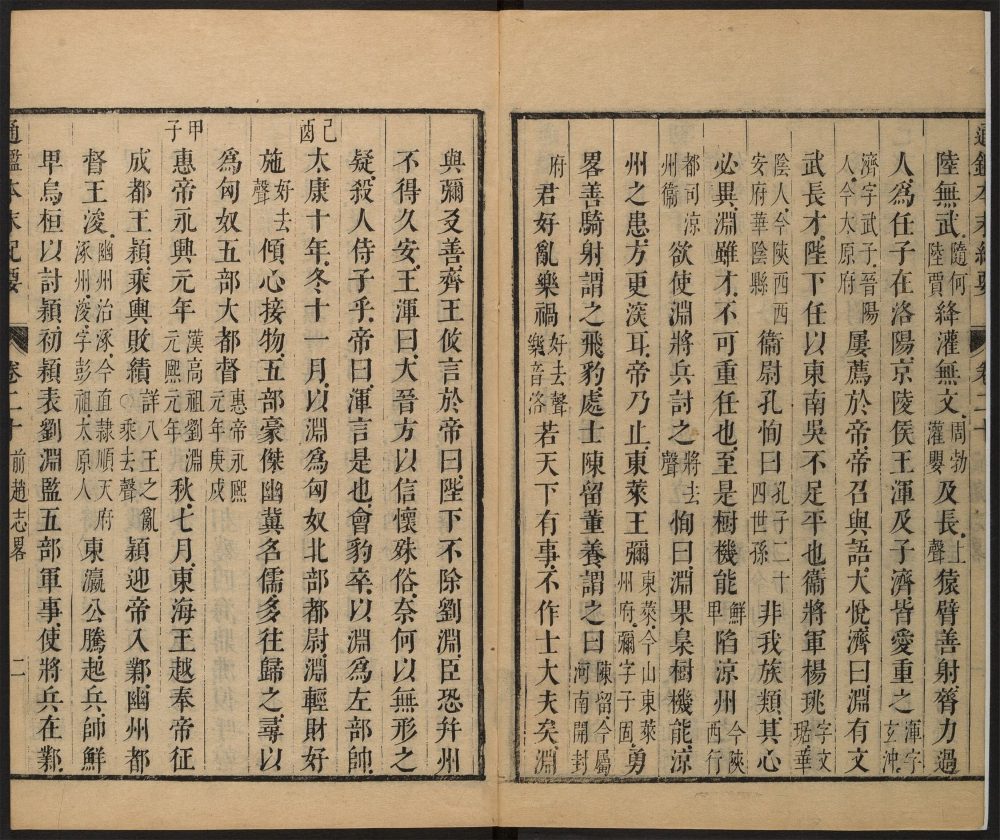 通鑑本末紀要　卷二十
陸無武隨何陸賈絳灌無文周勃灌嬰及長上聲猿臂善射膂力過
人爲任子在洛陽京陵侯王渾及子濟皆愛重之渾字玄沖
濟字武子晉陽人今太原府屢薦於帝帝召與語大悅濟曰淵有文
武長才陛下任以東南吳不足平也衞將軍楊珧字文琚華
陰人今陝西西安府華陰縣衞尉孔恂曰孔子二十四世孫非我族類其心
必異淵雖才不可重任也至是樹機能鮮卑陷涼州今陝西行
都司涼州衞欲使淵將兵討之將去聲恂曰淵果梟樹機能涼
州之患方更深耳帝乃止東萊王彌東萊今山東萊州府彌字子固勇
畧善騎射謂之飛豹處士陳留董養謂之曰陳留今屬河南開封
府君好亂樂禍好去聲樂音洛若天下有事不作士大夫矣淵
與彌友善齊王攸言於帝曰陛下不除劉淵臣恐幷州
不得久安王渾曰大晉方以信懷殊俗奈何以無形之
疑殺人侍子乎帝曰渾言是也會豹卒以淵爲左部帥
己酉太康十年冬十一月以淵爲匈奴北部都尉淵輕財好
施好去聲傾心接物五部豪傑幽冀名儒多往歸之尋以
爲匈奴五部大都督惠帝永熙元年庚戌
甲子惠帝永興元年漢高祖劉淵元熙元年秋七月東海王越奉帝征
成都王穎乘輿敗績詳八王之亂○乘去聲穎迎帝入鄴幽州都
督王浚幽州治涿今直隸順天府涿州浚字彭祖太原人東瀛公騰起兵帥鮮
卑烏桓以討穎初穎表劉淵監五部軍事使將兵在鄴
通鑑本末紀要　卷二十　前趙志畧　二